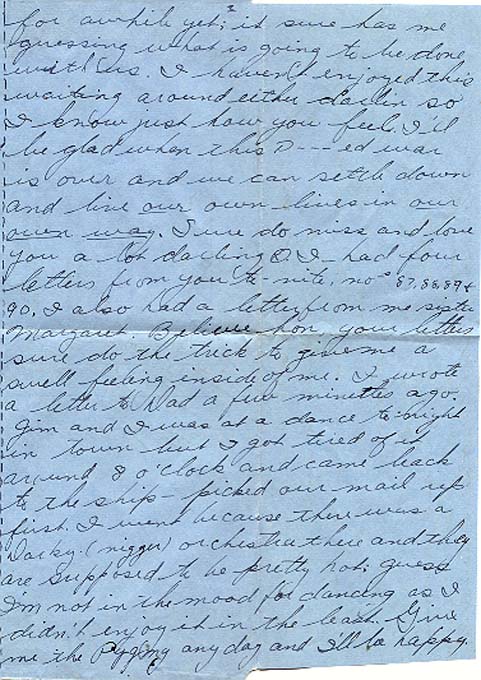 2
for awhile yet; it sure has me
guessing what is going to be done
with us. I haven't enjoyed this
waiting around either darlin so
I know just how you feel. I'll
be glad when this D---ed war
is over and we can settle down
and live our own lives in our
own way. I sure do miss and love
you a lot darling O. I had four
letters from you to-nite, no's 87,88,89+
90. I also had a letter from me sister
Margaret. Believe hon, your letters
sure do the trick to give me a
swell feeling inside of me. I wrote
a letter to Dad a few minutes ago.
Jim and I was at a dance to-night
in town but I got tired of it
around 8 o'clock and came back
to the ship - picked our mail up
first. I went because there was a
Darky (nigger) orchestra there and they
are supposed to be pretty hot; guess
I'm not in the mood for dancing as I
didn't enjoy it in the least. Give
me the Pygmy any day and I'll be happy.